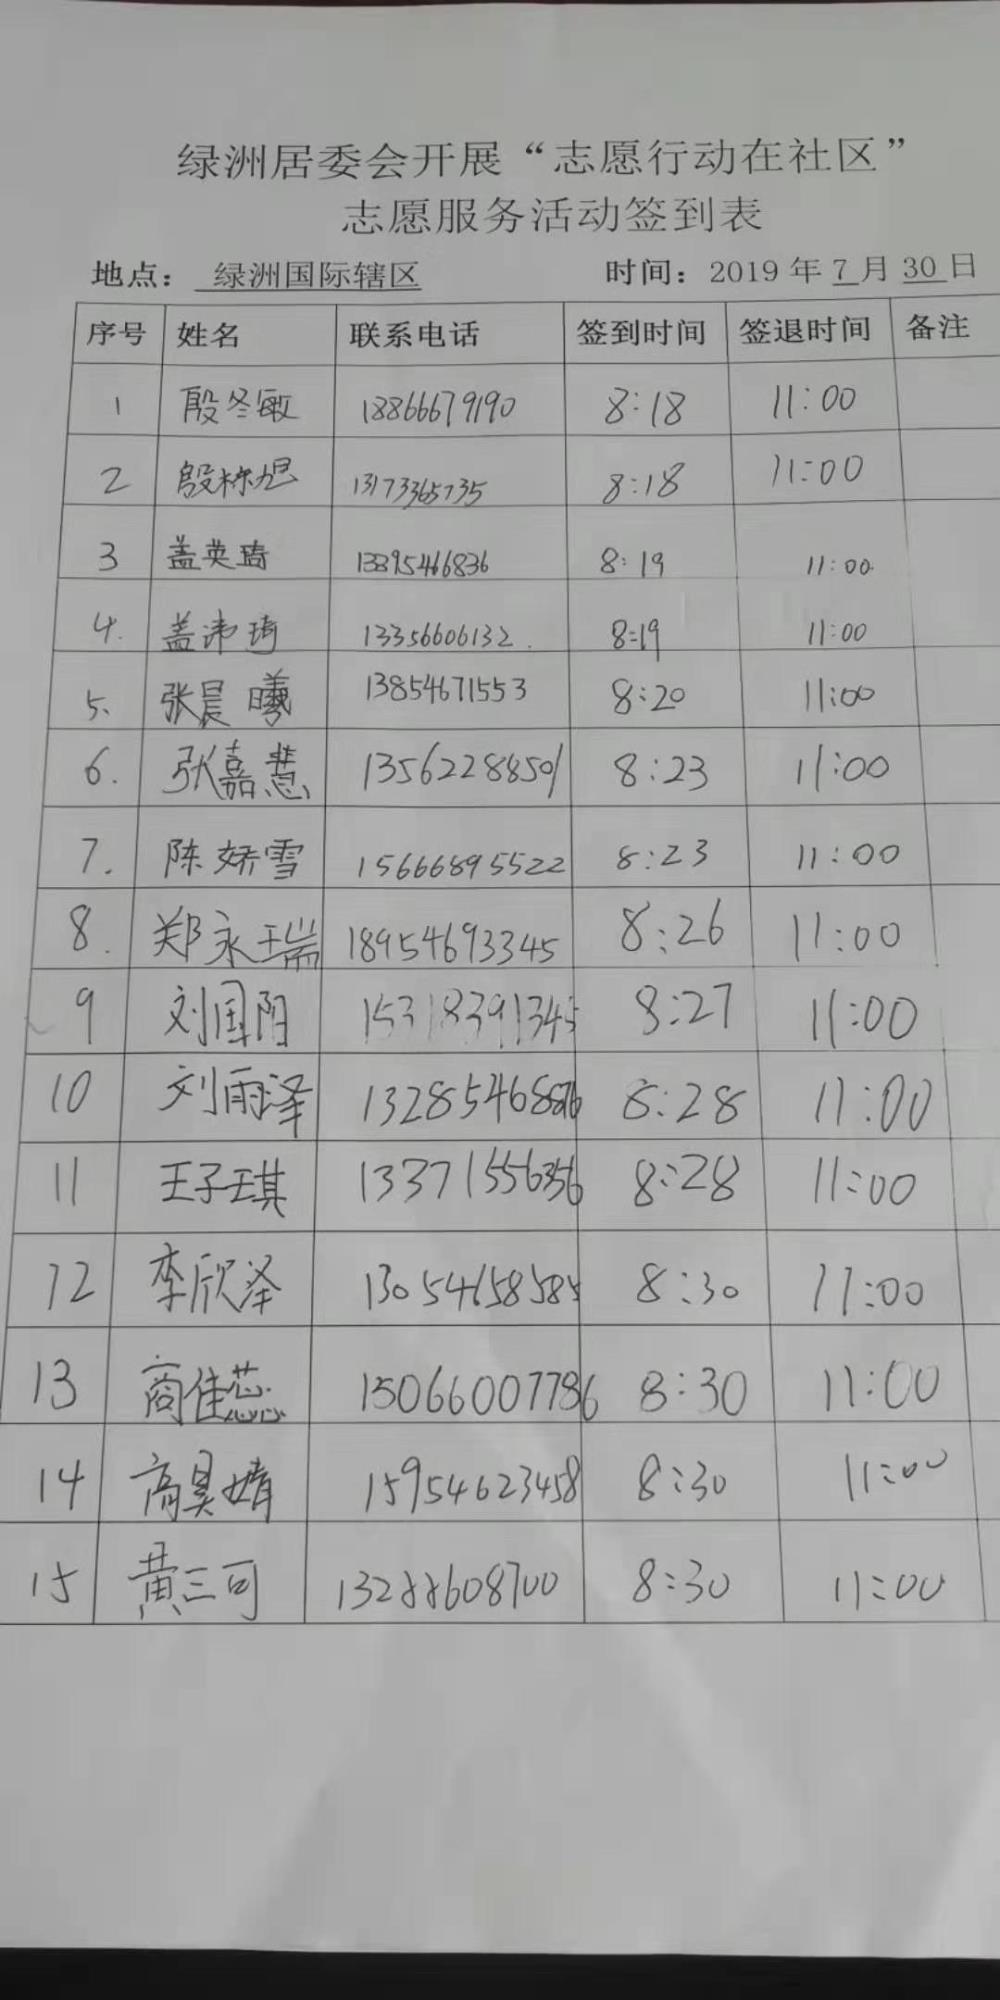 绿洲居委会开展“志愿行动在社区”
志愿服务活动签到表
地点： 绿洲国际辖区 时间：2019 年 7 月 30 日
序号 姓名 联系电话 签到时间 签退时间 备注
1 殷冬敏 18866679190 8:18 11:00
2 殷栋旭 13173365735 8:18 11:00
3 盖英琦 13395466836 8:19 11:00
4. 盖沛琦 13356606132. 8:19 11:00
5. 张晨曦 13854671553 8:20 11:00
6. 张嘉慧 13562288501 8:23 11:00
7. 陈娇雪 15666895522 8:23 11:00
8. 郑永瑞 18954693345 8:26 11:00
9 刘国阳 15318391345 8:27 11:00
10 刘雨泽 8:28 11:00
11 王子琪 13371556356 8:28 11:00
12 李欣泽 13054658585 8:30 11:00
13 商佳蕊 15066007786 8:30 11:00
14 高昊婧 15954623458 8:30 11:00
15 黄三可 13288608700 8:30 11:00